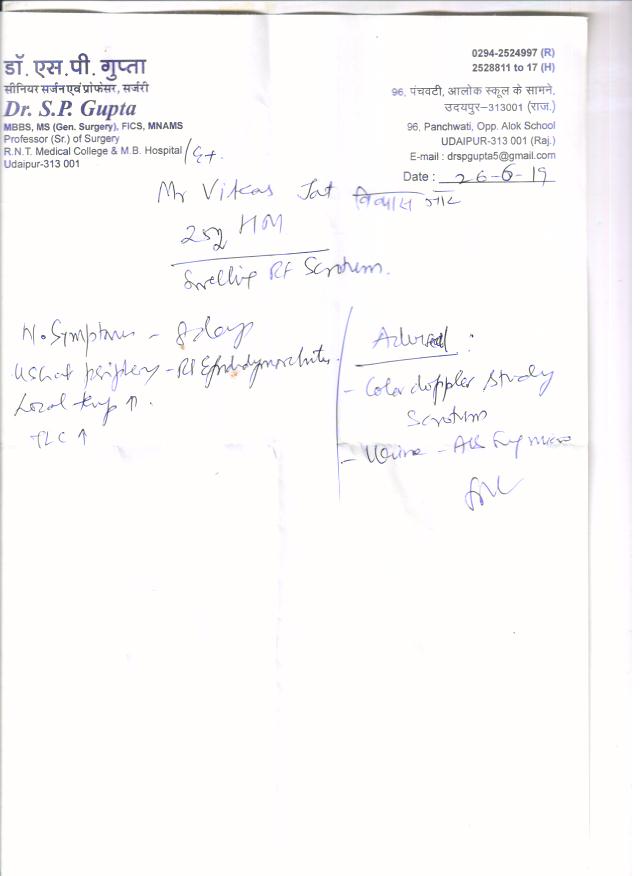 डॉ. एस.पी. गुप्ता
सीनियर सर्जन एवं प्रोफेसर, सर्जरी
Dr. S.P. Gupta
MBBS, MS (Gen. Surgery), FICS, MNAMS
Professor (Sr.) of Surgery
R.N.T. Medical College & M.B. Hospital
Udaipur-313 001
0294-2524997 (R)
2528811 to 17 (H)
96, पंचवटी, आलोक स्कूल के सामने,
उदयपुर–313001 (राज.)
96, Panchwati, Opp. Alok School
UDAIPUR-313 001 (Raj.)
E-mail : drspgupta5@gmail.com
Date : 26-6-19
Mr Vikas Jat विकास जाट
25y HM
Swelling Rt Scrotum.
Symptoms - 8 days
periphery - Rt Epididymorchitis
Local temp ↑.
TLC ↑
Advised :
- Color doppler Study
Scrotum
- Urine -